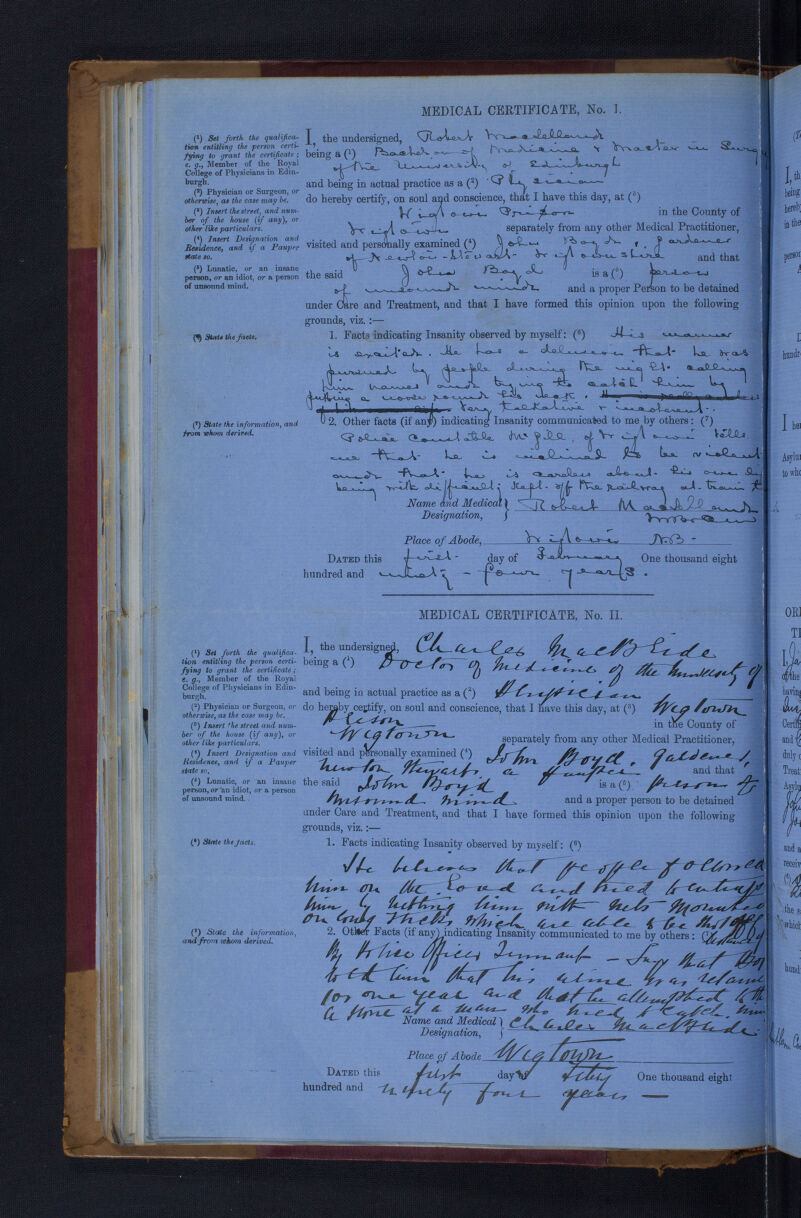 MEDICAL CERTIFICATE, No. I.
(¹) Set forth the qualifica-
tion entitling the person certi-
fying to grant the certificate;
e. g., Member of the Royal
College of Physicians in Edin-
burgh.
(²) Physician or Surgeon, or
otherwise, as the case may be.
(³) Insert the street, and num-
ber of the house (if any), or
other like particulars.
(⁴) Insert Designation and
Residence, and if a Pauper
state so.
(⁵) Lunatic, or an insane
person, or an idiot, or a person
of unsound mind.
(⁶) State the facts.
(⁷) State the information, and
from whom derived.
I, the undersigned, Robert Macclelland
being a (¹) Bachelor of Medicine & Master in
of the University of Edinburgh
and being in actual practice as a (²) Physician
do hereby certify, on soul and conscience, that I have this day, at (³)
Wigtown Prison in the County of
Wigtown separately from any other Medical Practitioner,
visited and personally examined (⁴) John Boyd, gardener
of Newton-Stewart Wigtownshire and that
the said John Boyd is a (⁵) person
of unsound mind and a proper Person to be detained
under Care and Treatment, and that I have formed this opinion upon the following
grounds, viz. :—
1. Facts indicating Insanity observed by myself: (⁶) His manner
is excited. He has a delusion that he was
pursued by people during the night calling
him names and trying to catch him by
putting a noose round his neck.
Very talkative & incoherent.
2. Other facts (if any) indicating Insanity communicated to me by others: (⁷)
Police Constable McGill, of Wigtown tells
me that he is inclined to be violent
and that he is careless about his own
being with difficulty kept off the railway at train
Name and Medical Designation, Robert Macclelland
M.B.
Place of Abode, Wigtown N.B-
DATED this first day of February One thousand eight
hundred and ninety-four years.
MEDICAL CERTIFICATE, No. II.
(¹) Set forth the qualifica-
tion entitling the person certi-
fying to grant the certificate;
e. g., Member of the Royal
College of Physicians in Edin-
burgh.
(²) Physician or Surgeon, or
otherwise, as the case may be.
(³) Insert the street and num-
ber of the house (if any), or
other like particulars.
(⁴) Insert Designation and
Residence, and if a Pauper
state so.
(⁵) Lunatic, or an insane
person, or an idiot, or a person
of unsound mind.
(⁶) State the facts.
(⁷) State the information,
and from whom derived.
I, the undersigned, Charles MacBride
being a (¹) Doctor of Medicine of the University of
and being in actual practice as a (²) Physician
do hereby certify, on soul and conscience, that I have this day, at (³) Wigtown
Prison in the County of
Wigtown separately from any other Medical Practitioner,
visited and personally examined (⁴) John Boyd, Gardener,
Newton Stewart, a pauper and that
the said John Boyd is a (⁵) person of
unsound mind and a proper person to be detained
under Care and Treatment, and that I have formed this opinion upon the following
grounds, viz. :—
1. Facts indicating Insanity observed by myself: (⁶)
He believes that people followed
him on the road and tried to
him by netting him with nets mounted
on long sticks which are able to be
2. Other Facts (if any) indicating Insanity communicated to me by others: (⁷)
By Police Officer - Says that Boyd
told him that his
for one year and that he attempted to
a stone at a man who tried to catch him
Name and Medical Designation, Charles MacBride
Place of Abode Wigtown
DATED this first day of Feby One thousand eight
hundred and ninety four years —